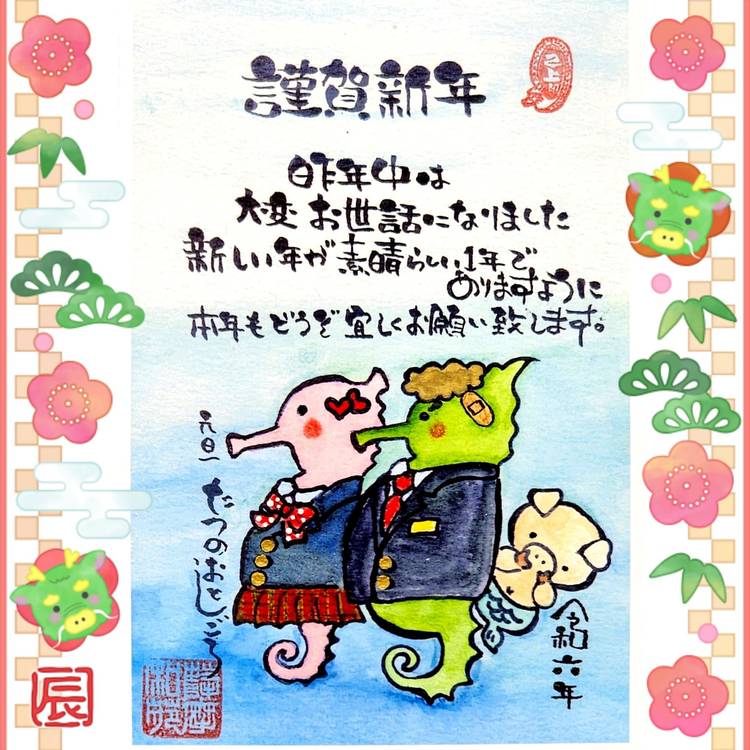 謹賀新年
昨年中は
大変お世話になりました
新しい年が素晴らしい1年で
ありますように
本年もどうぞ宜しくお願い致します。
元旦
たつのおとしごてつ
令和六年
辰